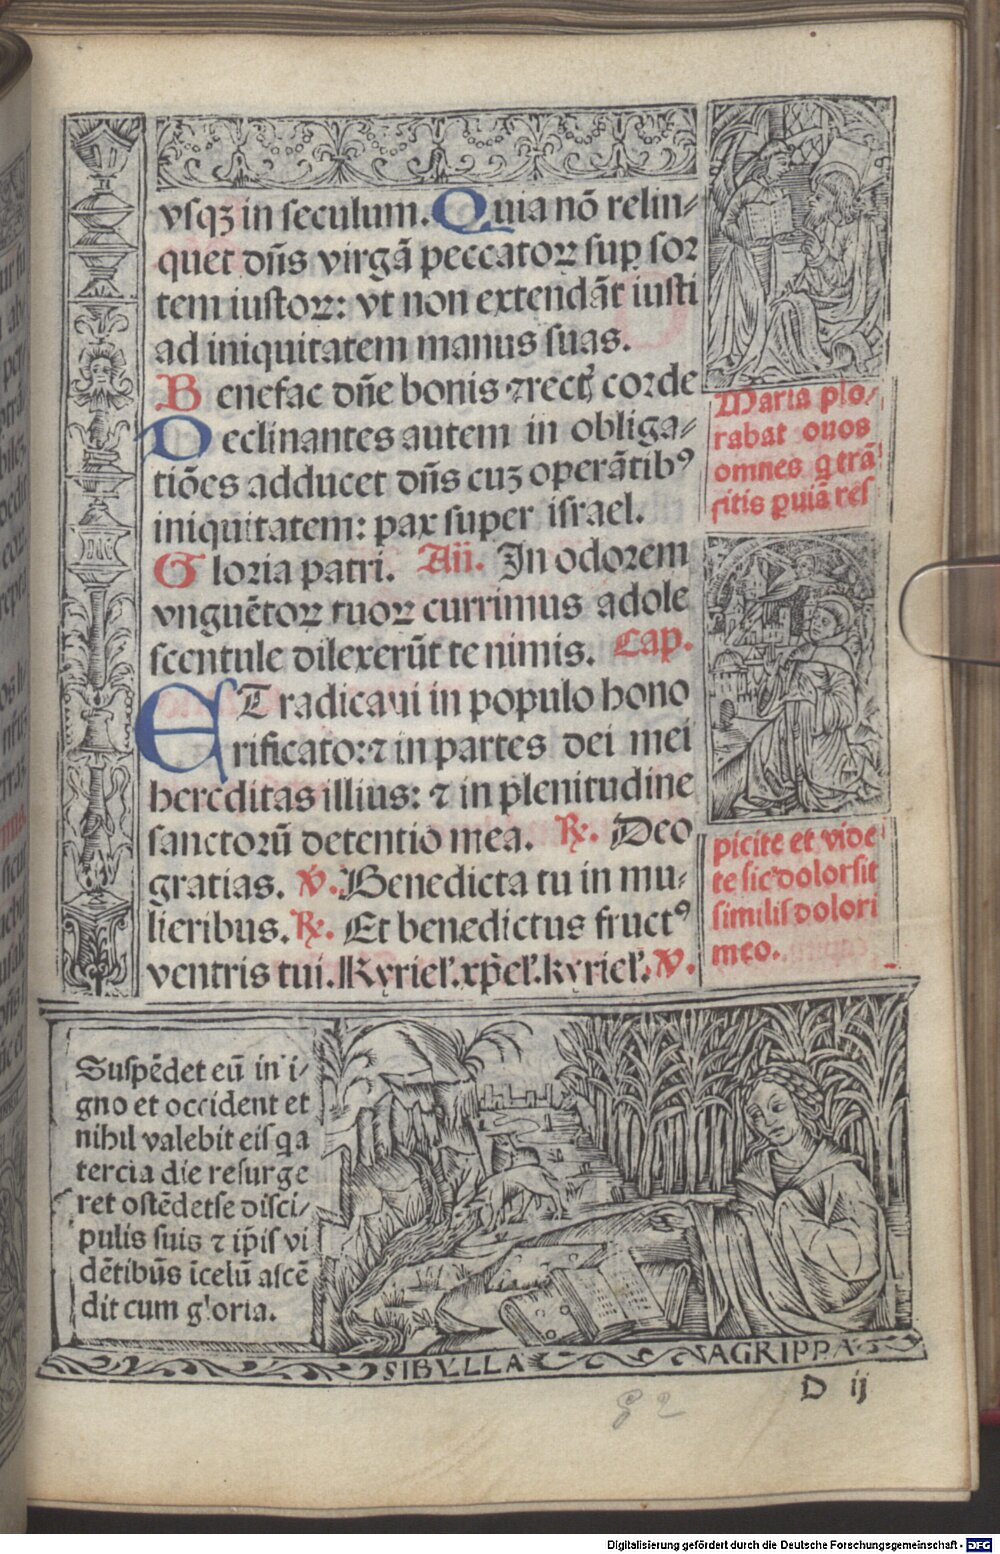 vsqꝫ in seculum. Quia nō relin⸗
quet dn̄s virgā peccatoꝝ suꝑ sor
tem iustoꝝ: vt non extendāt iusti
ad iniquitatem manus suas.
Benefac dn̄e bonis ⁊ rect corde
Declinantes autem in obliga⸗
tiōes adducet dn̄s cuꝫ operātibꝰ
iniquitatem: pax super israel.
Gloria patri. Añ. In odorem
vnguētoꝝ tuoꝝ currimus adole
scentule dilexerūt te nimis. Cap.
ET radicaui in populo hono
rificato: ⁊ in partes dei mei
hereditas illius: ⁊ in plenitudine
sanctorū detentio mea. ℞. Deo
gratias. ℣. Benedicta tu in mu⸗
lieribus. ℞. Et benedictus fructꝰ
ventris tui. Kyriel'. xp̄el'. kyriel'. ℣.
Maria plo⸗
rabat o vos
omnes q trā
sitis ꝑ uiā res
picite et vide
te sic dolor sit
similis dolori
meo.
Suspēdet eū in i⸗
gno et occident et
nihil valebit eis qa
tercia die resurge
ret ostēdet se disci⸗
pulis suis ⁊ ip̄is vi
dētibus īcelū ascē
dit cum gloria.
SIBVLLA AGRIPPA
D ij
g 2
Digitalisierung gefördert durch die Deutsche Forschungsgemeinschaft - DFG